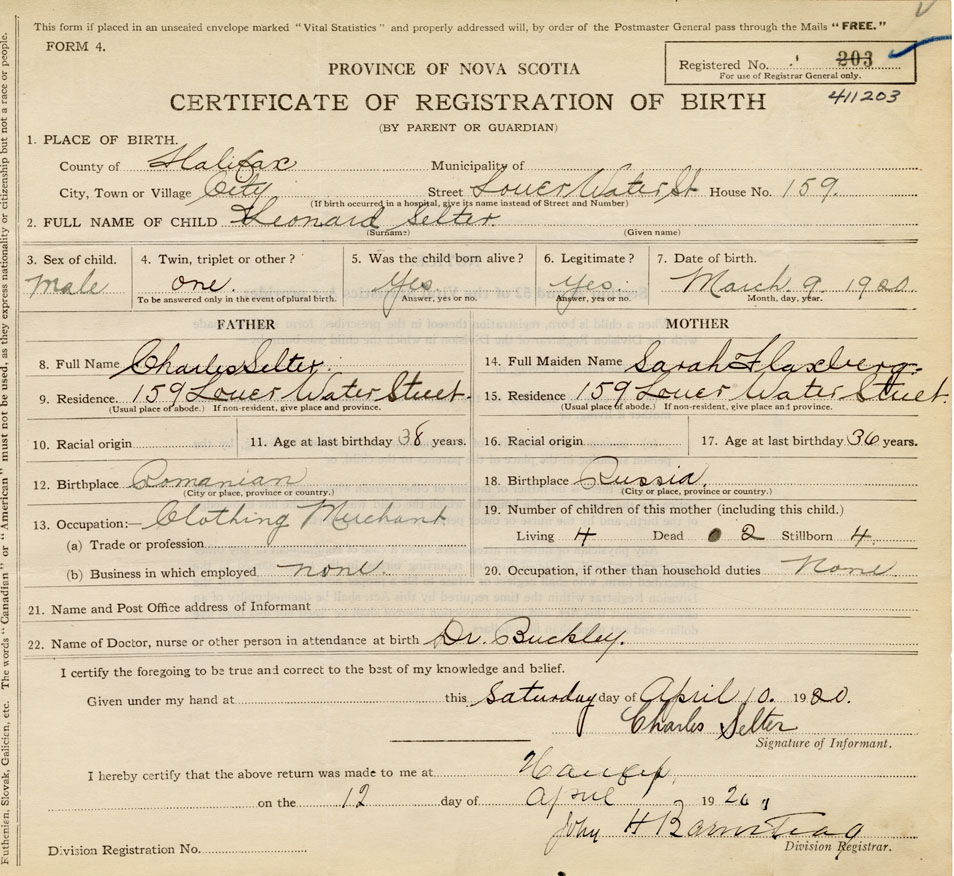 This form if placed in an unsealed envelope marked "Vital Statistics" and properly addressed will, by order of the Postmaster General pass through the Mails "FREE."
FORM 4.
Registered No. 203
For use of Registrar General only.
411203
PROVINCE OF NOVA SCOTIA
CERTIFICATE OF REGISTRATION OF BIRTH
(BY PARENT OR GUARDIAN)
1. PLACE OF BIRTH.
County of Halifax Municipality of
City, Town or Village City Street Lower Water St House No. 159.
(If birth occurred in a hospital, give its name instead of Street and Number)
2. FULL NAME OF CHILD Leonard Selter.
(Surname) (Given name)
3. Sex of child. 4. Twin, triplet or other? 5. Was the child born alive? 6. Legitimate? 7. Date of birth.
Male one. Yes Yes. March 9. 1920.
To be answered only in the event of plural birth. Answer, yes or no. Answer, yes or no. Month, day, year.
FATHER
8. Full Name Charles Selter.
9. Residence 159 Lower Water Street.
(Usual place of abode.) If non-resident, give place and province.
10. Racial origin 11. Age at last birthday 38 years.
12. Birthplace Romanian
(City or place, province or country.)
13. Occupation:— Clothing Merchant
(a) Trade or profession
(b) Business in which employed none.
MOTHER
14. Full Maiden Name Sarah Flaxberg.
15. Residence 159 Lower Water Street.
(Usual place of abode.) If non-resident, give place and province.
16. Racial origin 17. Age at last birthday 36 years.
18. Birthplace Russia.
(City or place, province or country.)
19. Number of children of this mother (including this child.)
Living 4 Dead 2 Stillborn 4.
20. Occupation, if other than household duties None
21. Name and Post Office address of Informant
22. Name of Doctor, nurse or other person in attendance at birth Dr. Buckley.
I certify the foregoing to be true and correct to the best of my knowledge and belief.
Given under my hand at this Saturday day of April 10. 1920.
Charles Selter
Signature of Informant.
I hereby certify that the above return was made to me at Halifax,
on the 12 day of April 1920
John H Barnstead
Division Registrar.
Division Registration No.
Ruthenian, Slovak, Galicien, etc. The words "Canadian" or "American" must not be used, as they express nationality or citizenship but not a race or people.